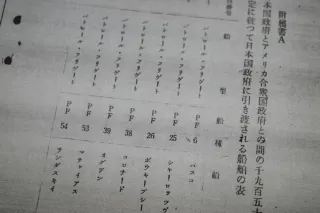 附属書A
本国政府とアメリカ合衆国政府との間の千九百五十
定に従つて日本国政府に引き渡される船舶の表
船型
船種
船
パトロール・フリゲート PF 6 パスコ
パトロール・フリゲート PF 25
パトロール・フリゲート PF 26
パトロール・フリゲート PF 38 コロナード
パトロール・フリゲート PF 39 オグデン
パトロール・フリゲート PF 53 マチアイアス
パトロール・フリゲート PF 54 サンダスキイ